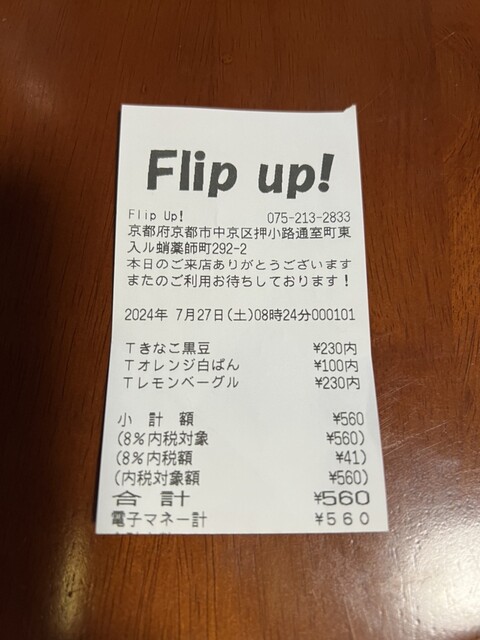 Flip up!
Flip Up! 075-213-2833
京都府京都市中京区押小路通室町東
入ル蛸薬師町292-2
本日のご来店ありがとうございます
またのご利用お待ちしております！
2024年 7月27日(土)08時24分000101
Tきなこ黒豆 ¥230内
Tオレンジ白ぱん ¥100内
Tレモンベーグル ¥230内
小 計 額 ¥560
(8%内税対象 ¥560)
(8%内税額 ¥41)
(内税対象額 ¥560)
合 計 ¥560
電子マネー計 ¥560